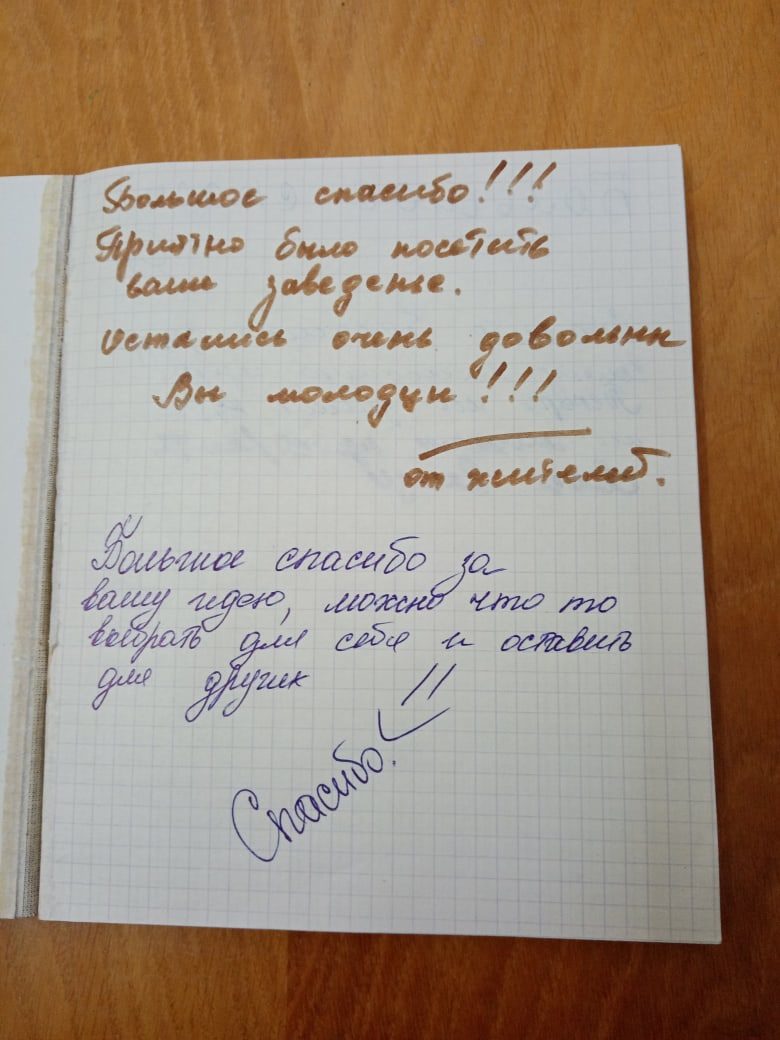 Большое спасибо!!!
Приятно было посетить
ваше заведенье.
Остались очень довольны
Вы молодцы!!!
от жителей.
Большое спасибо за
вашу идею, можно что то
выбрать для себя и оставить
для других !!
Спасибо!